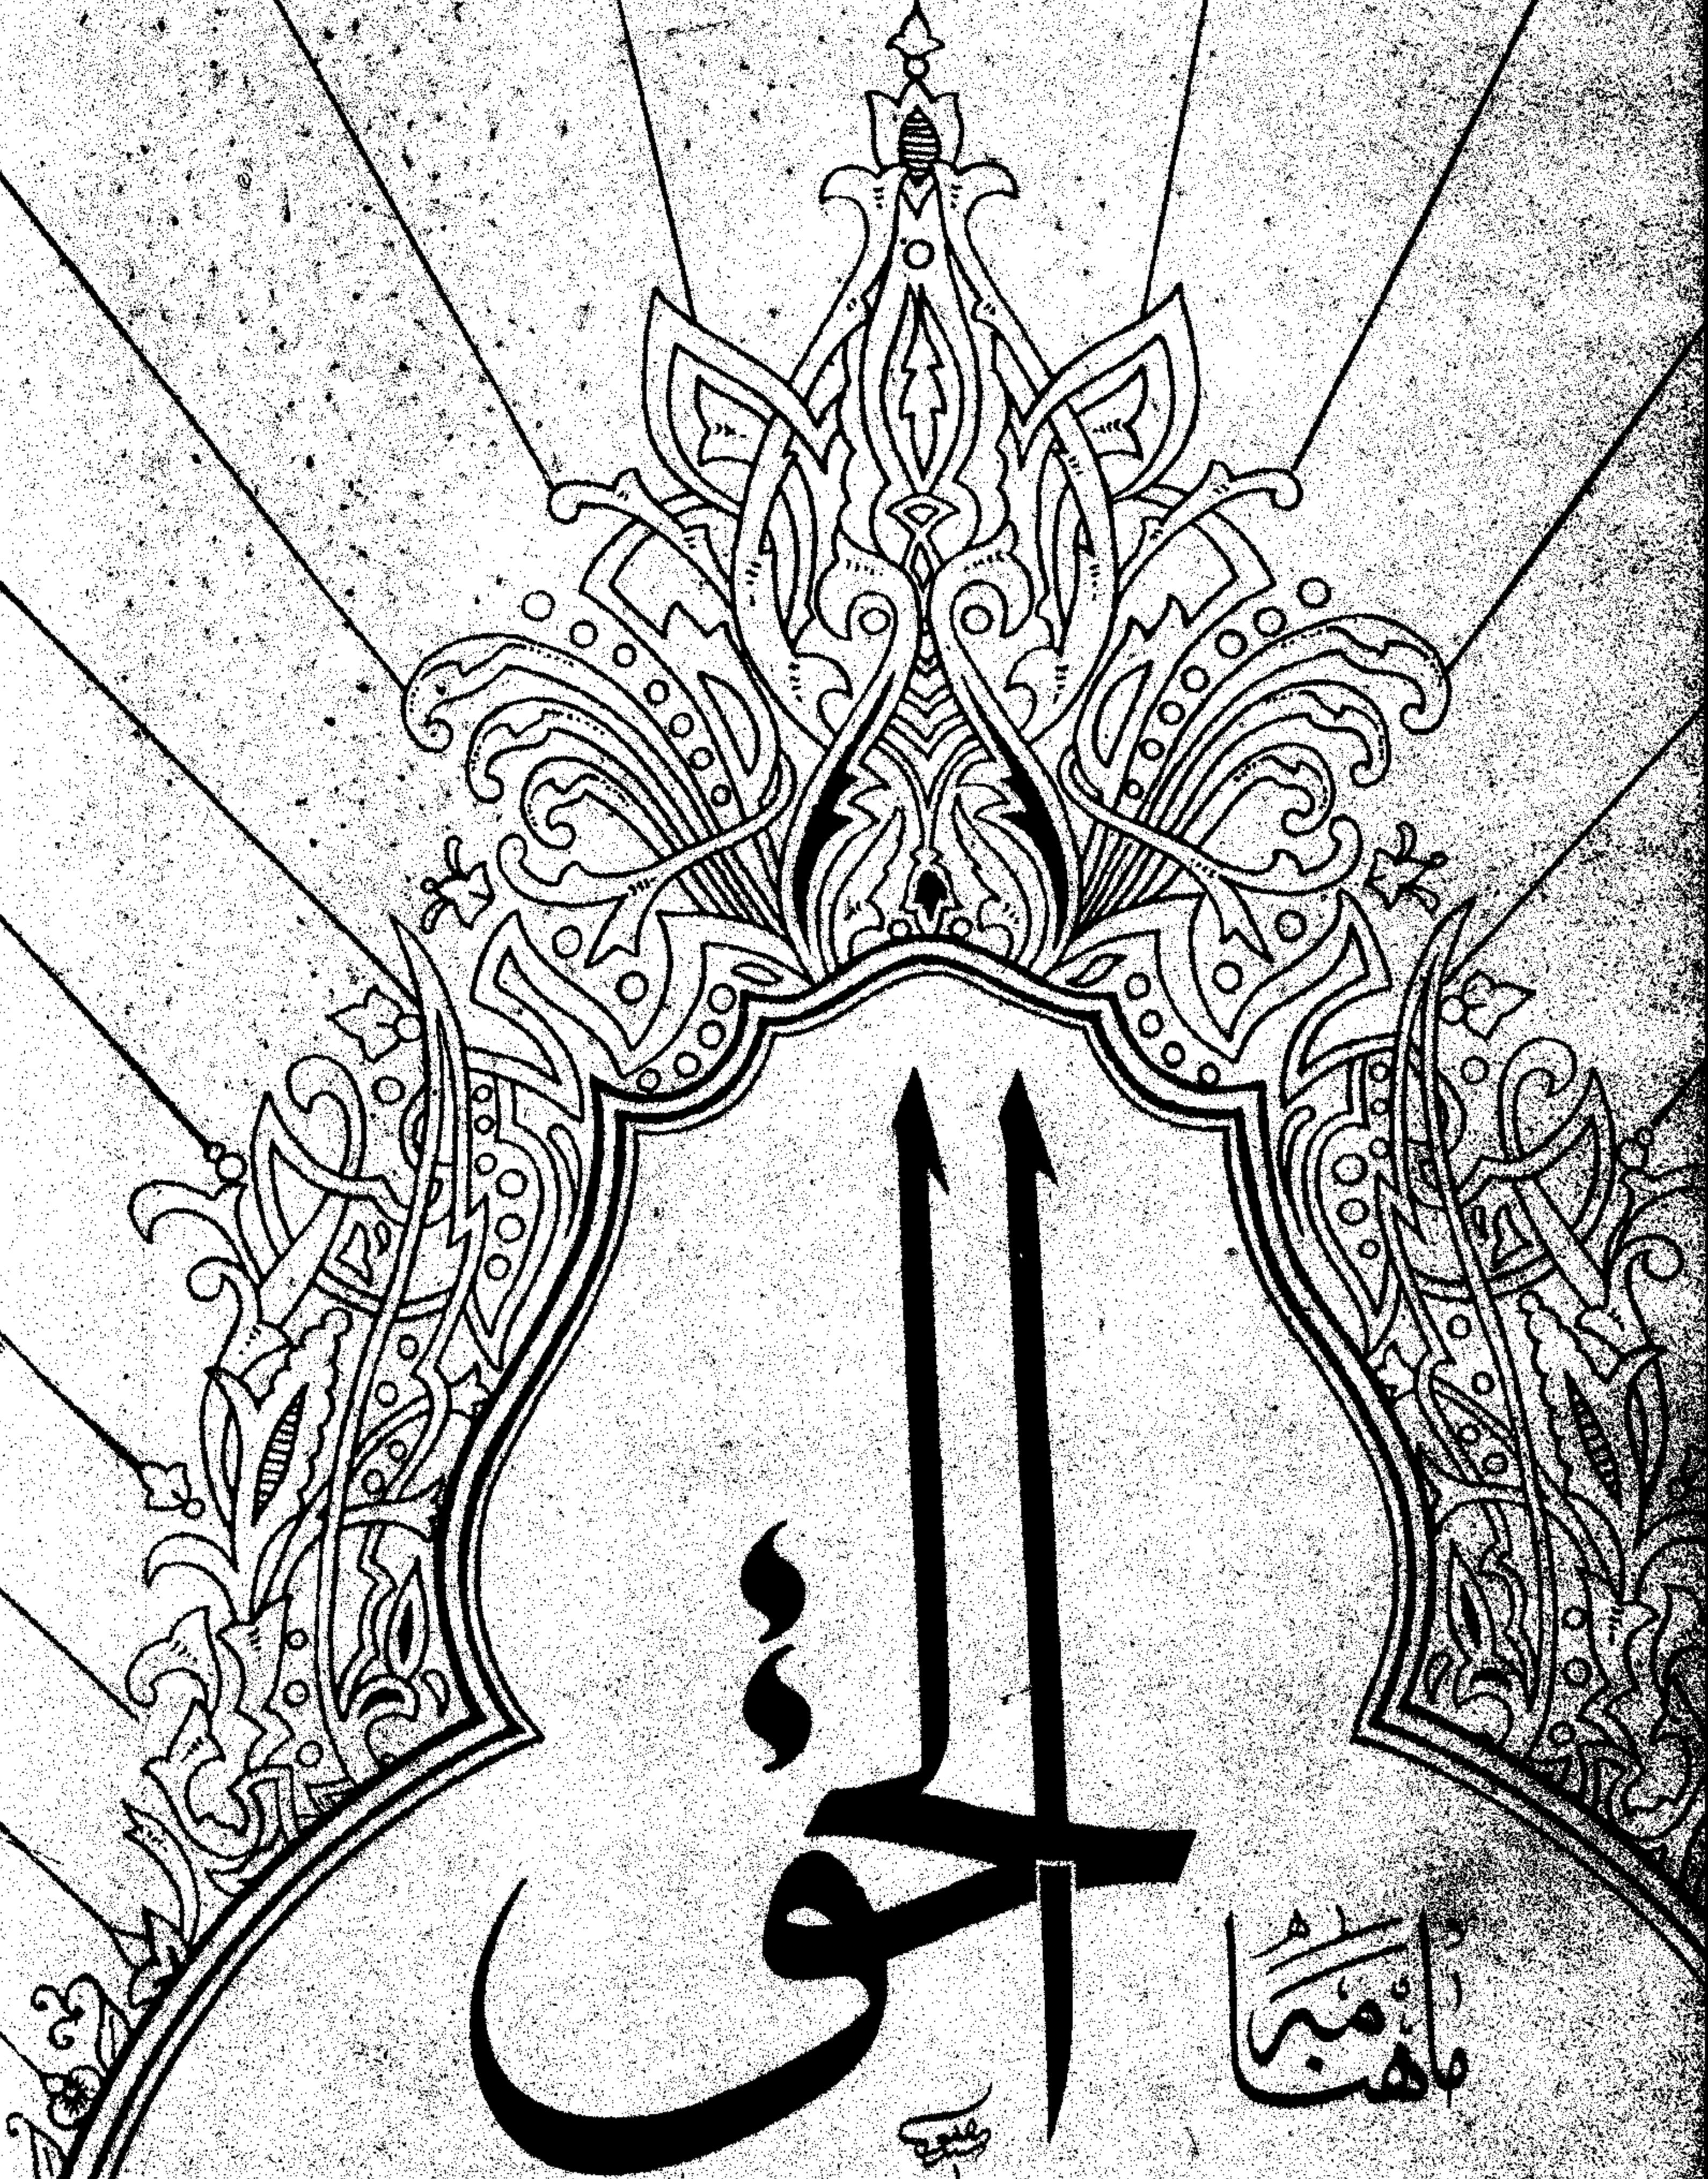 ماہنامہ
الحق